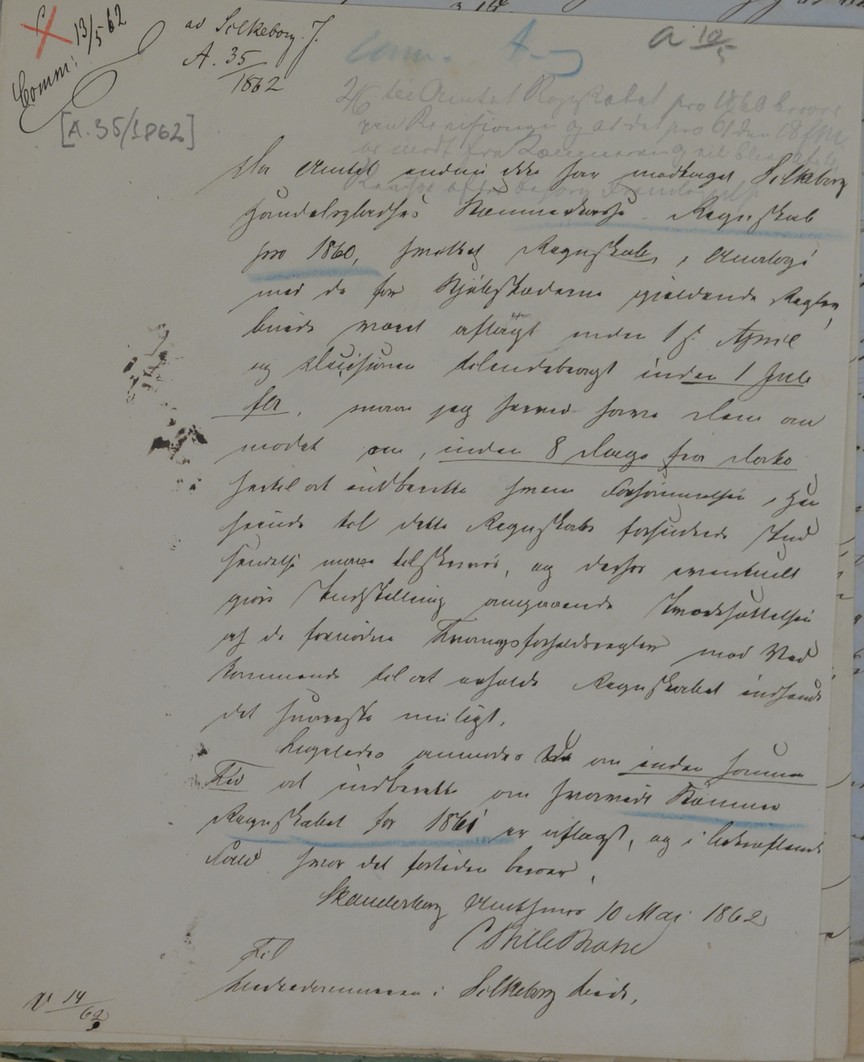 Comm: 13/5 62
ad Silkeborg J.
A. 35/1862
[A. 35/1862]
a 10/5
2/6 til Amtet Regnskabet pro 1860 beror
Da Amtet endnu ikke har modtaget Silkeborg
Handelsplads's Kæmnerkasse Regnskab
pro 1860, hvilket Regnskab, i Analogi
med de for Kjøbstæderne gjældende Regler,
burde været aflagt inden 1 f. April
og Decisionen tilendebragt inden 1 Juli
f. A., maa jeg herved have Dem an
modet om, inden 8 Dage fra Dato
hertil at indberette hvem Forsømmelsen i Hen
seende til dette Regnskabs forsinkede Ind
sendelse maa tilskrives, og derhos eventuelt
gjøre Indstilling angaaende Iværksættelsen
af de fornødne Tvangsforholdsregler mod Ved
kommende til at erholde Regnskabet indsendt
det snareste muligt.
Ligeledes anmodes De om inden samme
Tid at indberette om hvorvidt Kæmner
Regnskabet for 1861 er aflagt, og i bekræftende
Fald hvor det fortiden beror.
Skanderborg Amthuus 10 Mai 1862
Til
Herredsfuldmægtigen i Silkeborg Birk.
14/62